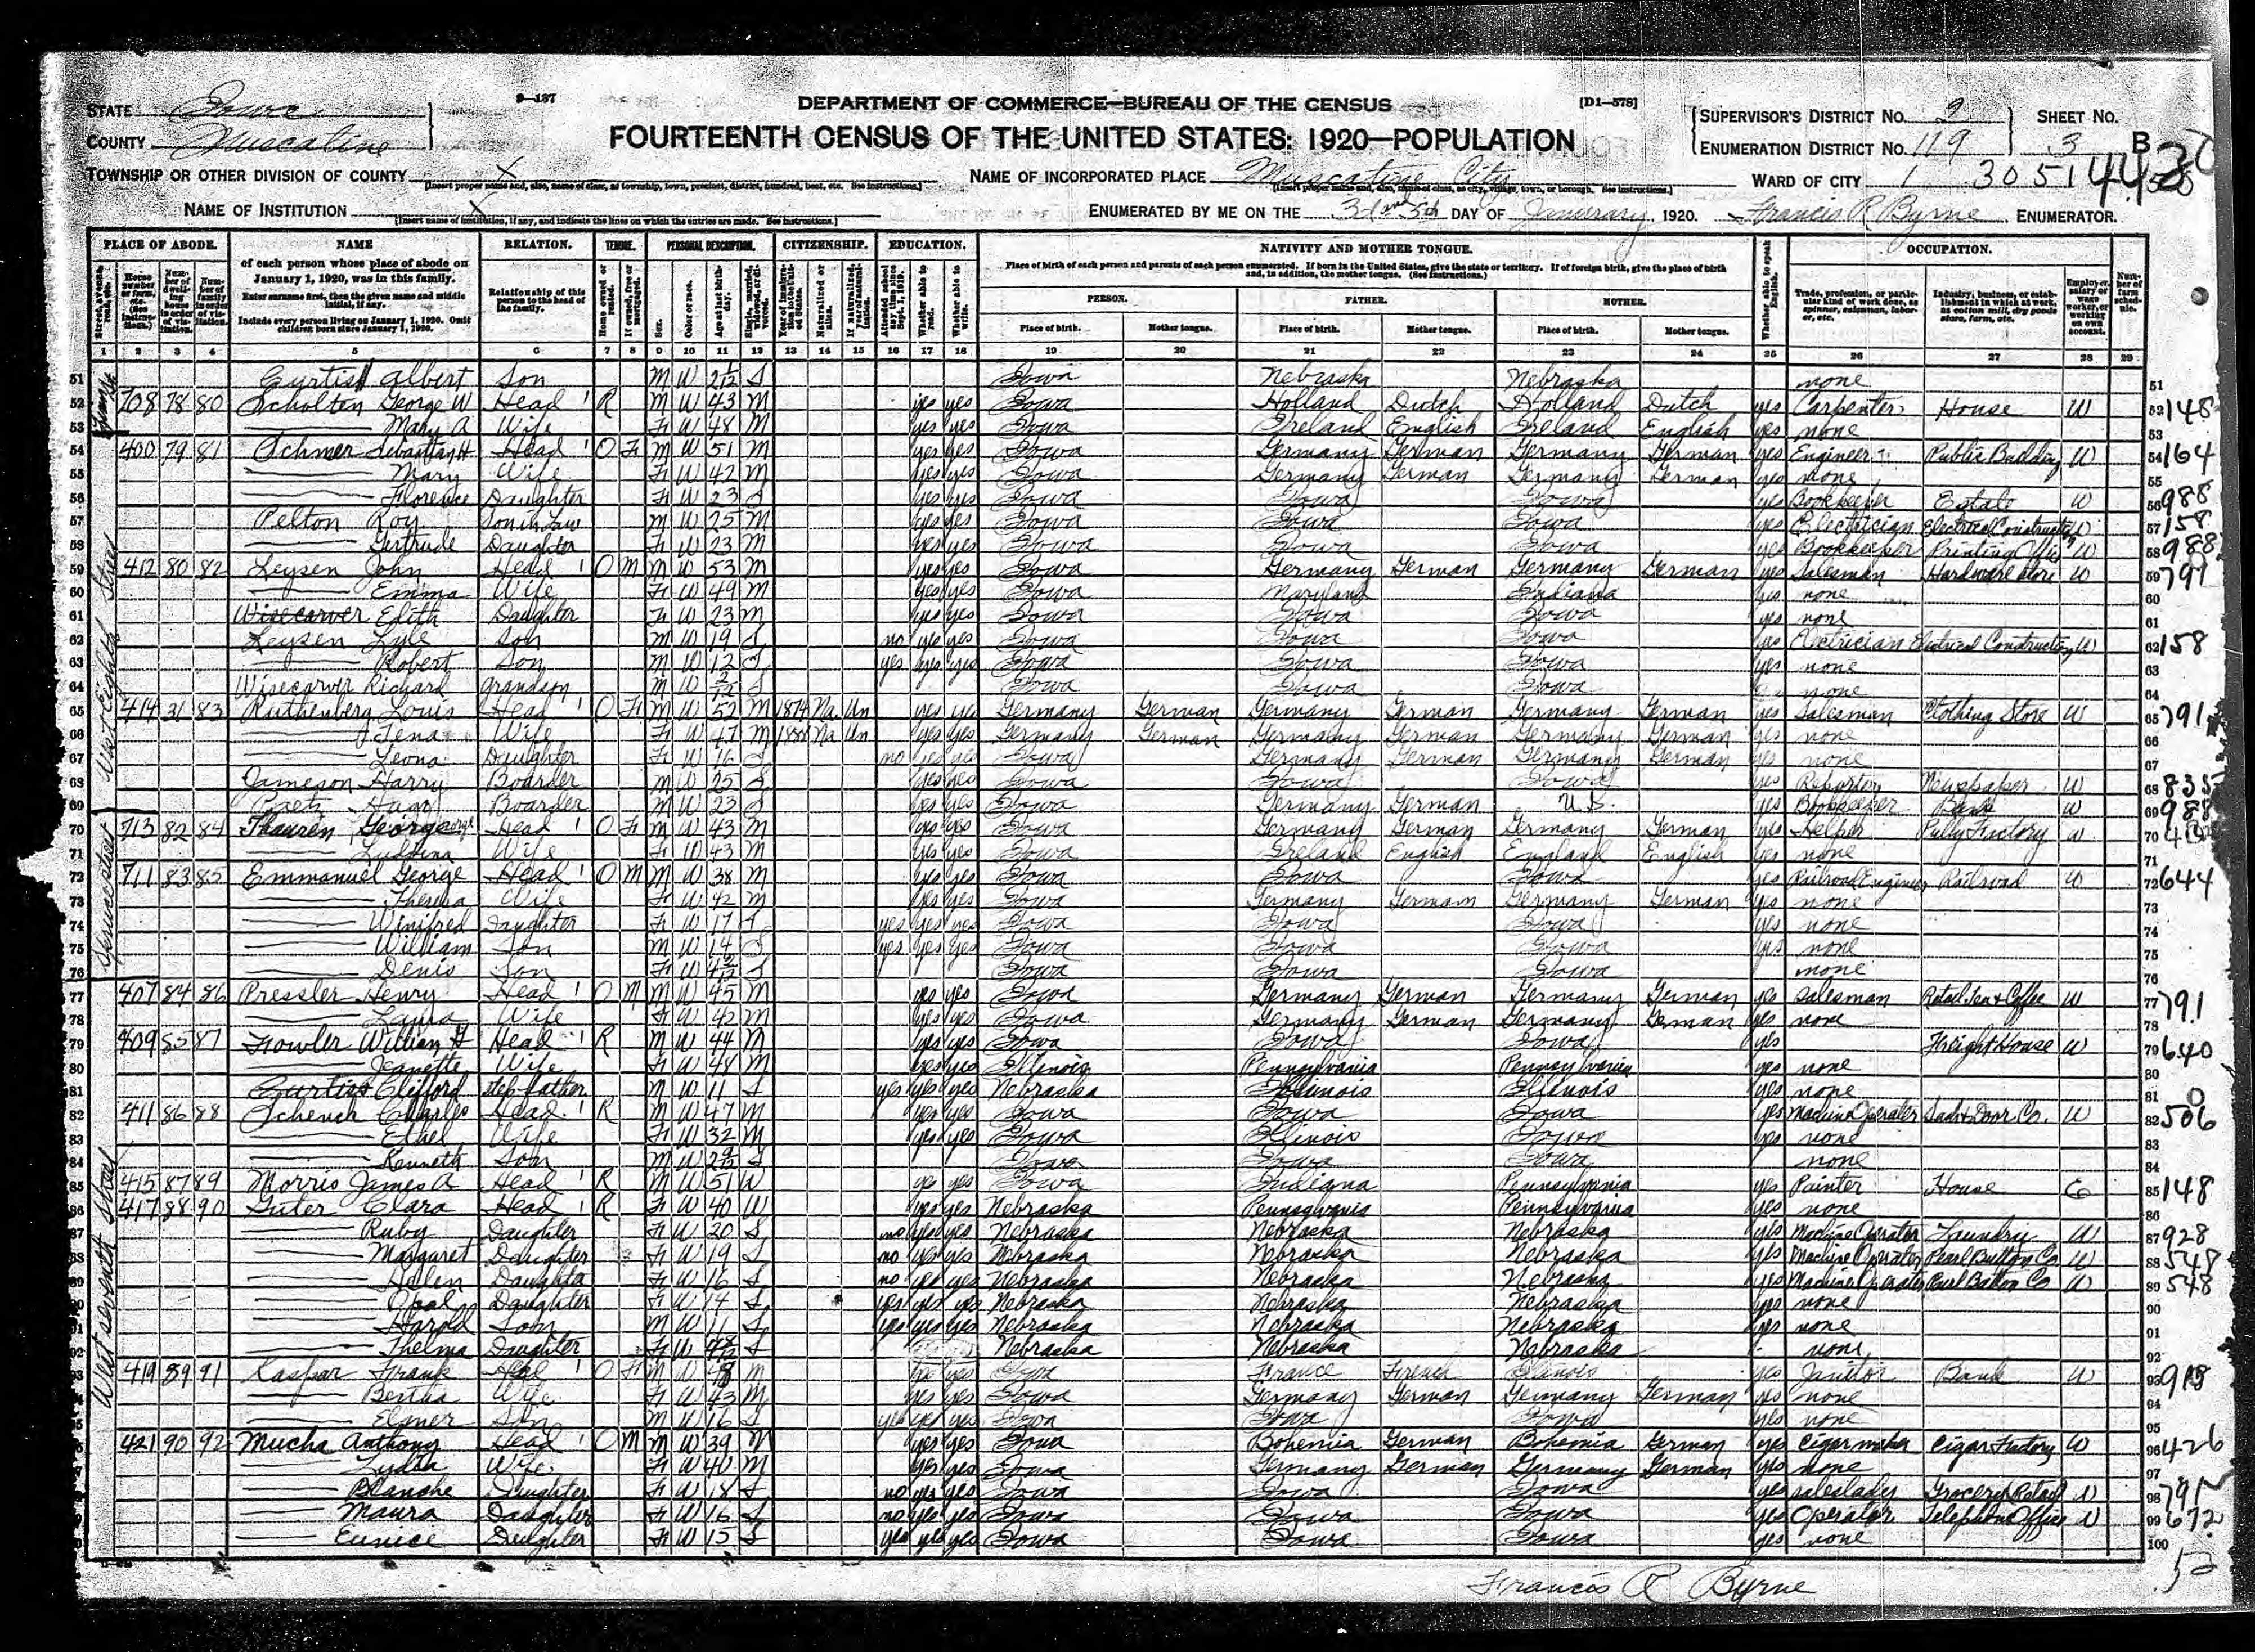 9—137
DEPARTMENT OF COMMERCE—BUREAU OF THE CENSUS
[D1—578]
STATE Iowa
COUNTY Muscatine
FOURTEENTH CENSUS OF THE UNITED STATES: 1920—POPULATION
SUPERVISOR'S DISTRICT No. 2 SHEET No.
ENUMERATION DISTRICT No. 119 3 B
TOWNSHIP OR OTHER DIVISION OF COUNTY X
NAME OF INCORPORATED PLACE Muscatine City
WARD OF CITY 1
NAME OF INSTITUTION X
ENUMERATED BY ME ON THE 3d and 5th DAY OF January, 1920. Francis R Byrne, ENUMERATOR.
PLACE OF ABODE. NAME RELATION. TENURE. PERSONAL DESCRIPTION. CITIZENSHIP. EDUCATION. NATIVITY AND MOTHER TONGUE. OCCUPATION.
of each person whose place of abode on January 1, 1920, was in this family.
Enter surname first, then the given name and middle initial, if any.
Include every person living on January 1, 1920. Omit children born since January 1, 1920.
Relationship of this person to the head of the family.
Place of birth of each person and parents of each person enumerated. If born in the United States, give the state or territory. If of foreign birth, give the place of birth and, in addition, the mother tongue. (See instructions.)
PERSON. FATHER. MOTHER.
Place of birth. Mother tongue. Place of birth. Mother tongue. Place of birth. Mother tongue.
1 2 3 4 5 6 7 8 9 10 11 12 13 14 15 16 17 18 19 20 21 22 23 24 25 26 27 28 29
51 Curtis Albert Son M W 2 1/12 S Iowa Nebraska Nebraska none 51
52 708 78 80 Scholten George W Head 1 R M W 43 M yes yes Iowa Holland Dutch Holland Dutch yes Carpenter House W 52 148
53 Mary A Wife F W 48 M yes yes Iowa Ireland English Ireland English yes none 53
54 400 79 81 Schmer Sebastian H Head 1 O F M W 51 M yes yes Iowa Germany German Germany German yes Engineer Public Building W 54 164
55 Mary Wife F W 42 M yes yes Iowa Germany German Germany German yes none 55
56 Florence Daughter F W 23 S yes yes Iowa Iowa Iowa yes Bookkeeper Estate W 56 988
57 Pelton Roy Son in Law M W 25 M yes yes Iowa Iowa Iowa yes Electrician Electrical Construction W 57 158
58 Gertrude Daughter F W 23 M yes yes Iowa Iowa Iowa yes Bookkeeper Printing Office W 58 988
59 412 80 82 Leysen John Head 1 O M M W 53 M yes yes Iowa Germany German Germany German yes Salesman Hardware Store W 59 791
60 Emma Wife F W 49 M yes yes Iowa Maryland Indiana yes none 60
61 Wisecarver Edith Daughter F W 23 M yes yes Iowa Iowa Iowa yes none 61
62 Leysen Lyle Son M W 19 S no yes yes Iowa Iowa Iowa yes Electrician Electrical Construction W 62 158
63 Robert Son M W 12 S yes yes yes Iowa Iowa Iowa yes none 63
64 Wisecarver Richard Grandson M W 2/12 S Iowa Iowa Iowa none 64
65 414 31 83 Ruthenberg Louis Head 1 O F M W 52 M 1874 Na Un yes yes Germany German Germany German Germany German yes Salesman Clothing Store W 65 791
66 Lena Wife F W 47 M Na Un yes yes Germany German Germany German Germany German yes none 66
67 Leona Daughter F W 16 S no yes yes Iowa Germany German Germany German yes none 67
68 Jameson Harry Boarder M W 25 S yes yes Iowa Iowa Iowa yes Reporter Newspaper W 68 835
69 Boarder M W 23 S yes yes Iowa Germany German U.S. yes Bookkeeper Bank W 69 988
70 713 82 84 Thauren George Head 1 O F M W 43 M yes yes Iowa Germany German Germany German yes Helper Factory W 70
71 Wife F W 43 M yes yes Iowa Ireland English England English yes none 71
72 711 83 85 Emmanuel George Head 1 O M M W 38 M yes yes Iowa Iowa Iowa yes Railroad Engineer Railroad W 72 644
73 Wife F W 42 M yes yes Iowa Germany German Germany German yes none 73
74 Winifred Daughter F W 17 S yes yes yes Iowa Iowa Iowa yes none 74
75 William Son M W 14 S yes yes yes Iowa Iowa Iowa yes none 75
76 Denis Son F W S Iowa Iowa Iowa none 76
77 407 84 86 Pressler Henry Head 1 O M M W 45 M yes yes Iowa Germany German Germany German yes Salesman Retail Tea & Coffee W 77 791
78 Laura Wife F W 42 M yes yes Iowa Germany German Germany German yes none 78
79 409 85 87 Fowler William Head 1 R M W 44 M yes yes Iowa Iowa Iowa yes Freight House W 79 640
80 Jeanette Wife F W 48 M yes yes Illinois Pennsylvania Pennsylvania yes none 80
81 Curtiss Clifford Step father M W 11 S yes yes yes Nebraska Illinois Illinois yes none 81 0
82 411 86 88 Schench Charles Head 1 R M W 47 M yes yes Iowa Iowa Iowa yes Machine Operator Sash & Door Co. W 82 506
83 Ethel Wife F W 32 M yes yes Iowa Illinois Iowa yes none 83
84 Kenneth Son M W S Iowa Iowa Iowa none 84
85 415 87 89 Morris James A Head 1 R M W 51 W yes yes Iowa Indiana Pennsylvania yes Painter House 85 148
86 417 88 90 Guter Clara Head 1 R F W 40 W yes yes Nebraska Pennsylvania Pennsylvania yes none 86
87 Ruby Daughter F W 20 S no yes yes Nebraska Nebraska Nebraska yes Machine Operator Laundry W 87 928
88 Margaret Daughter F W 19 S no yes yes Nebraska Nebraska Nebraska yes Machine Operator Pearl Button Co W 88 548
89 Helen Daughter F W 16 S no yes yes Nebraska Nebraska Nebraska yes Machine Operator Pearl Button Co W 89 548
90 Opal Daughter F W 14 S yes yes yes Nebraska Nebraska Nebraska yes none 90
91 Harold Son M W 11 S yes yes yes Nebraska Nebraska Nebraska yes none 91
92 Thelma Daughter F W S Nebraska Nebraska Nebraska none 92
93 419 89 91 Kaspar Frank Head 1 O F M W M yes yes Iowa France French Illinois yes Janitor Bank W 93
94 Bertha Wife F W 43 M yes yes Iowa Germany German Germany German yes none 94
95 Elmer Son M W 16 S yes yes yes Iowa Iowa Iowa yes none 95
421 90 92 Mucha Anthony Head 1 O M M W 39 M yes yes Iowa Bohemia German Bohemia German yes Cigar maker Cigar Factory W 96 426
Lydia Wife F W 40 M yes yes Iowa Germany German Germany German yes none 97
Blanche Daughter F W 18 S no yes yes Iowa Iowa Iowa yes Saleslady Grocery Retail W 98 791
Maura Daughter F W 16 S no yes yes Iowa Iowa Iowa yes Operator Telephone Office W 99 672
Eunice Daughter F W 15 S yes yes yes Iowa Iowa Iowa yes none 100
West Eighth Street
Spruce Street
West Seventh Street
Francis R Byrne